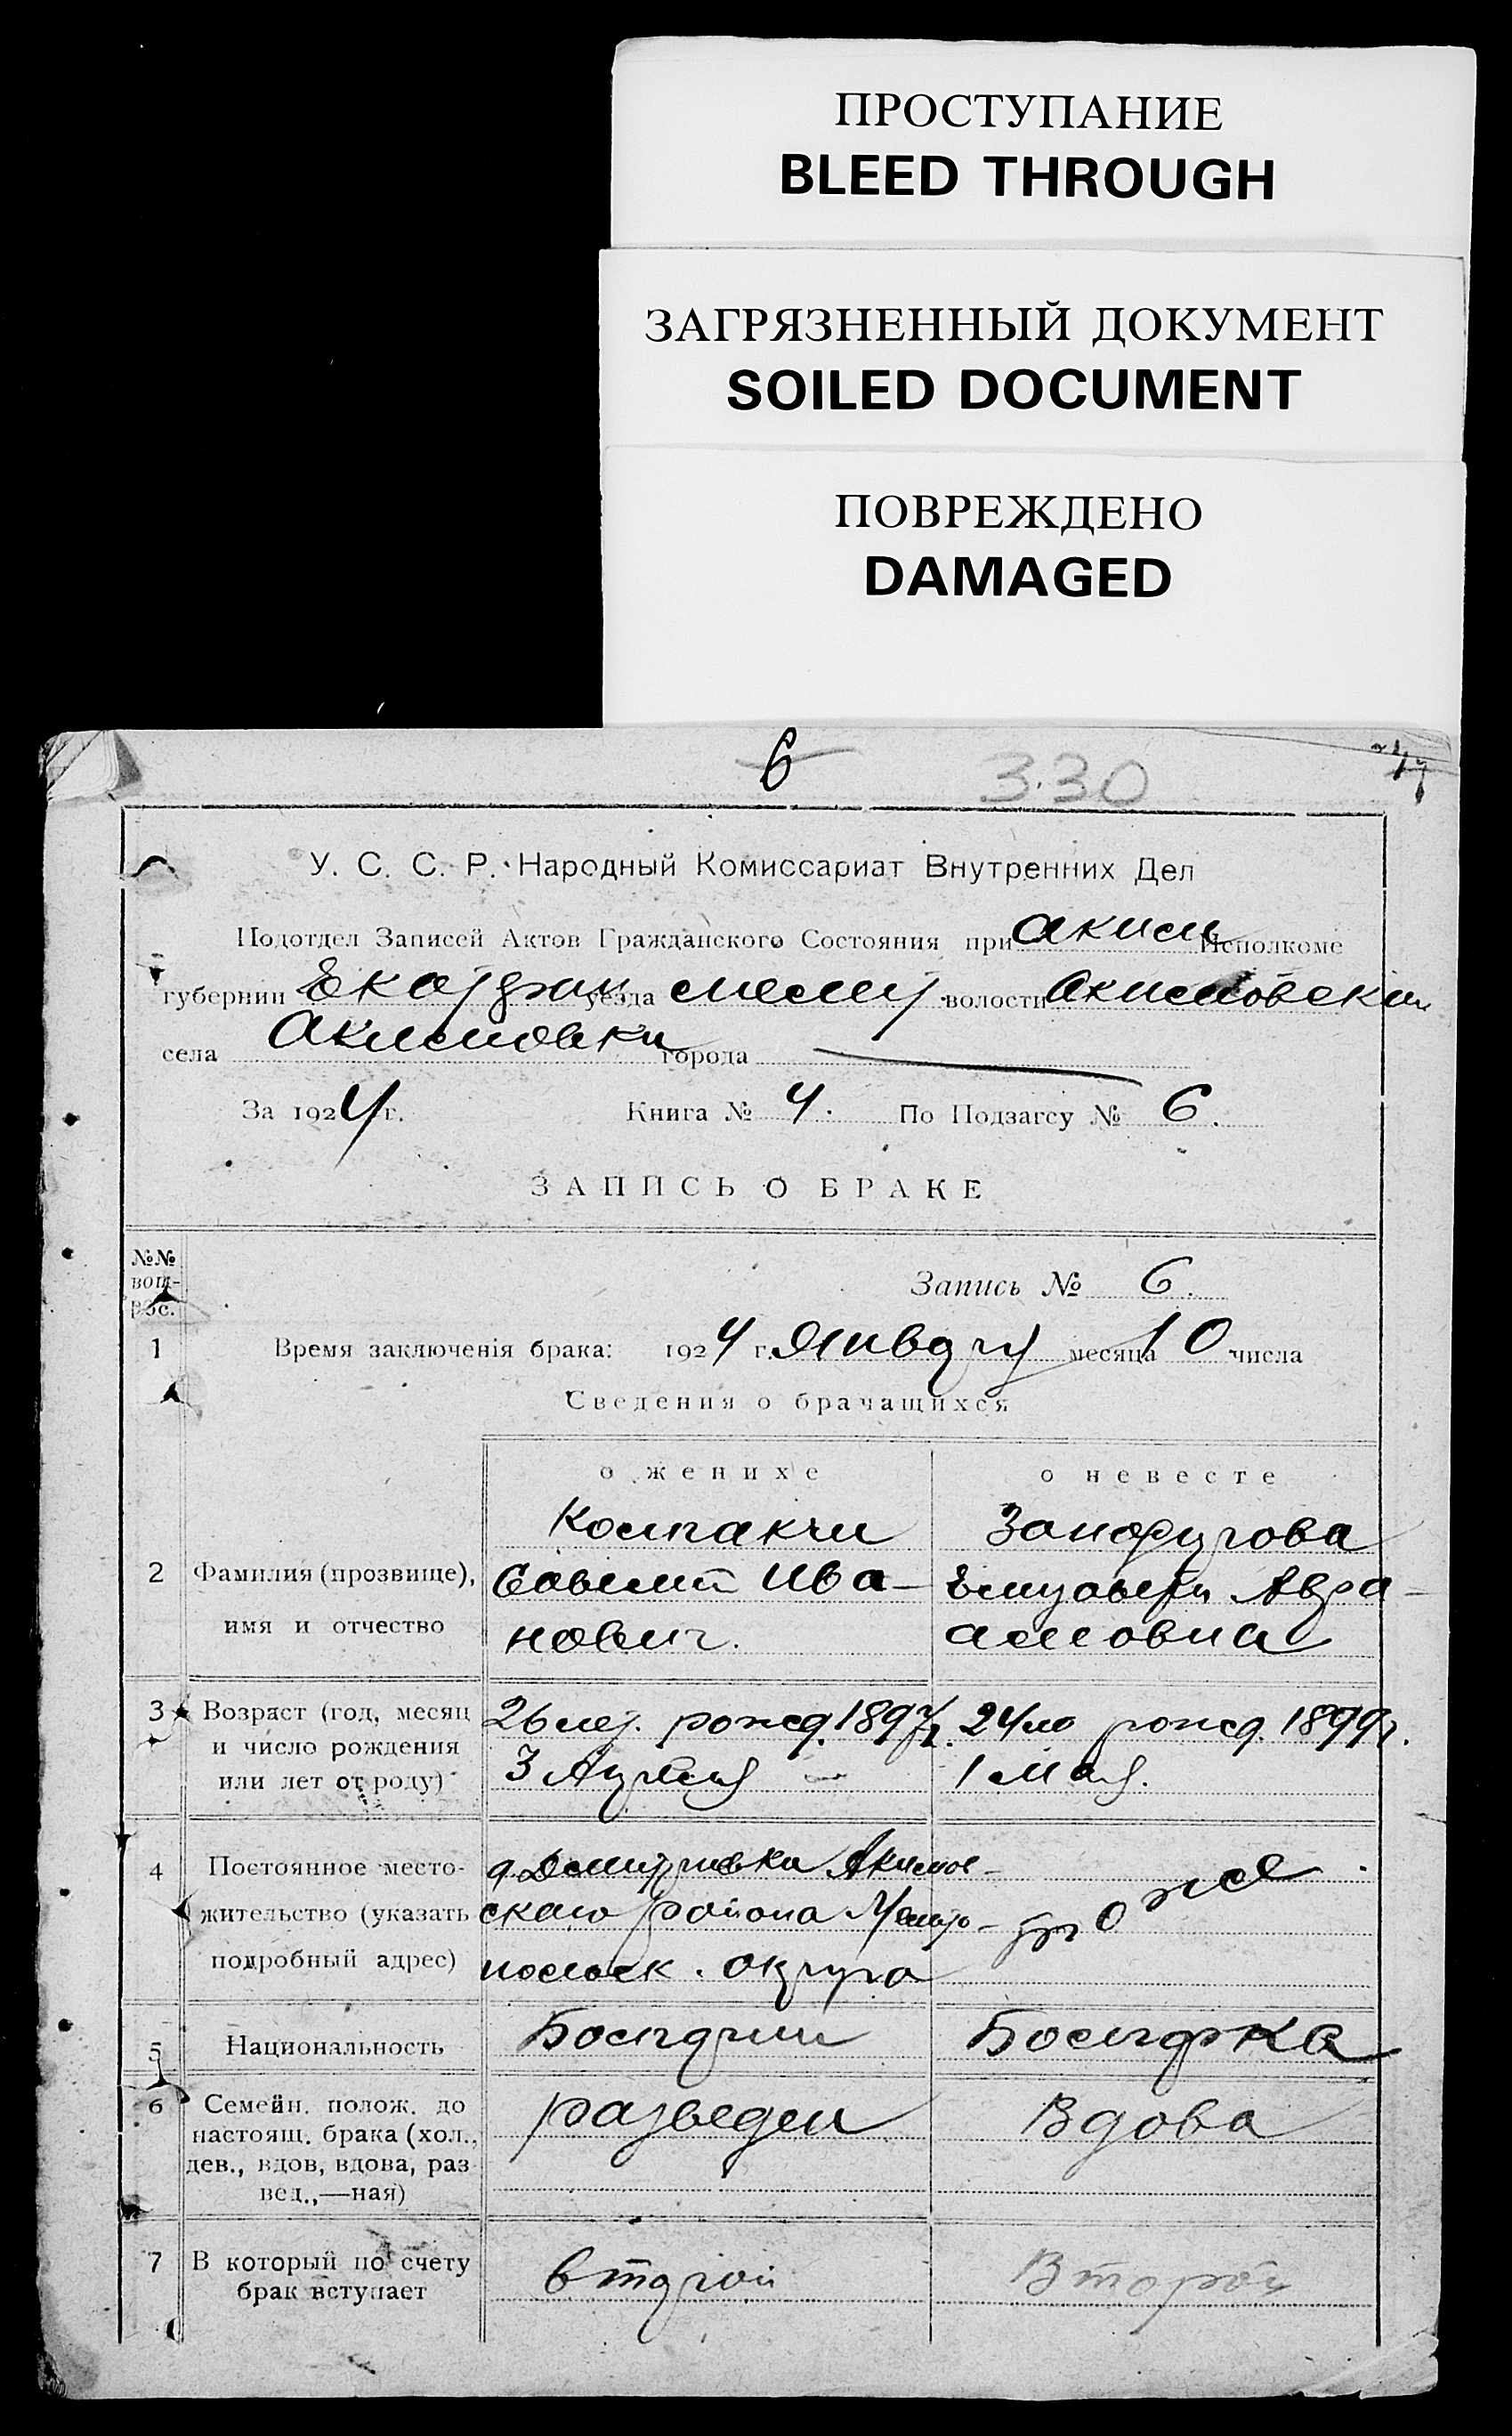 ПРОСТУПАНИЕ
BLEED THROUGH
ЗАГРЯЗНЕННЫЙ ДОКУМЕНТ
SOILED DOCUMENT
ПОВРЕЖДЕНО
DAMAGED
6 3.30
У. С. С. Р. Народный Комиссариат Внутренних Дел
Подотдел Записей Актов Гражданского Состояния при Аким Исполкоме
губернии уезда волости Акимовской
села Акимовки города
За 1924 г. Книга № 4. По Подзагсу № 6.
ЗАПИСЬ О БРАКЕ
№№ вопрос.
Запись № 6.
1 Время заключенія брака: 1924 г. Января месяца 10 числа
Сведения о брачащихся
о женихе о невесте
2 Фамилия (прозвище), имя и отчество
Костакчи
Савелий Ива-
нович.
Авра-
амовна
3 Возраст (год, месяц и число рождения или лет от роду)
26 лет. рожд. 1897 г.
3 Апреля
24 рожд. 1899 г.
1 Мая.
4 Постоянное место-жительство (указать подробный адрес)
д. Димитровка Акимов-
ского района Мелито-
польск. округа
то же
5 Национальность
Болгарин Болгарка
6 Семейн. полож. до настоящ. брака (хол., дев., вдов, вдова, раз вед.,—ная)
разведен Вдова
7 В который по счету брак вступает
второй Второй